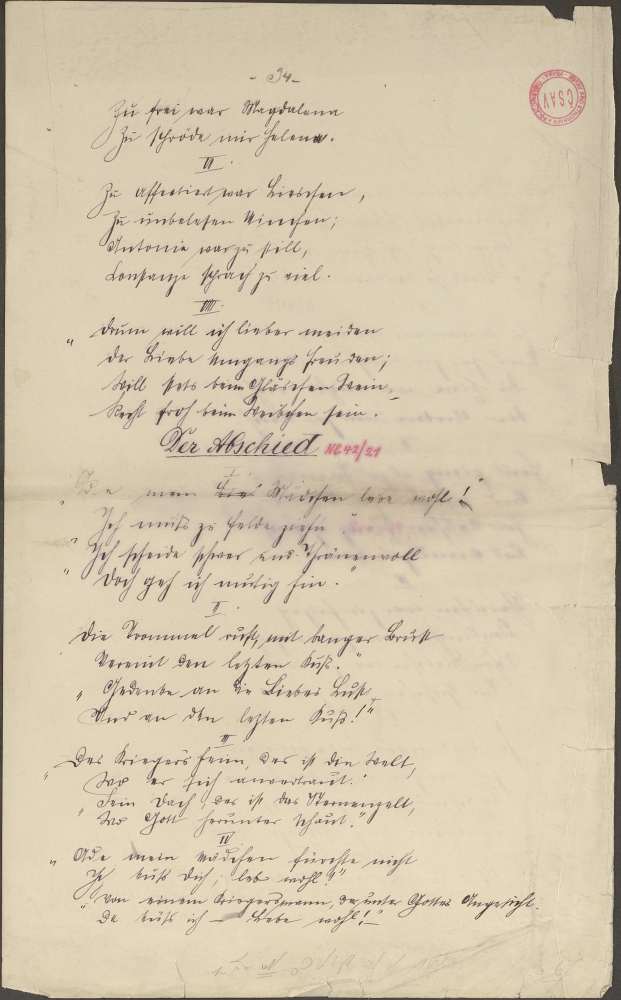 - 34 -
Zu frei war Magdalena
Zu spröde mir Helena.
VII.
Zu affectirt war Lieschen,
Zu unbelesen Minchen;
Antonie war zu still,
Constanze sprach zu viel.
VIII.
„ Drum will ich lieber meiden
Der Liebe Freuden;
Will stets beim Gläschen Wein
Recht froh beim Weibchen sein.
Der Abschied NE 42/21
I
„ Ade mein Mädchen lebe wohl!"
Ich muß zu Felde ziehn
„ Ich scheide schwer und Thränenvoll
„ Doch geh ich muthig hin."
II.
Die Trommel ruft, mit banger Brust
Vereint den letzten Kuß."
„ Gedenke an die Liebes Lust
Und an den letzten Kuß!"
III
„ Des Kriegers Heim, das ist die Welt,
Wo er sich anvertraut.
„ Sein Dach, das ist das Sternenzelt,
Wo Gott herunter schaut."
IV
„ Ade mein Mädchen fürchte nicht
Ich küß Dich; leb wohl!"
„ Von einem Kriegersmann, der unter Gottes Angesicht.
Da küß ich — Lebe wohl!"
ČSAV